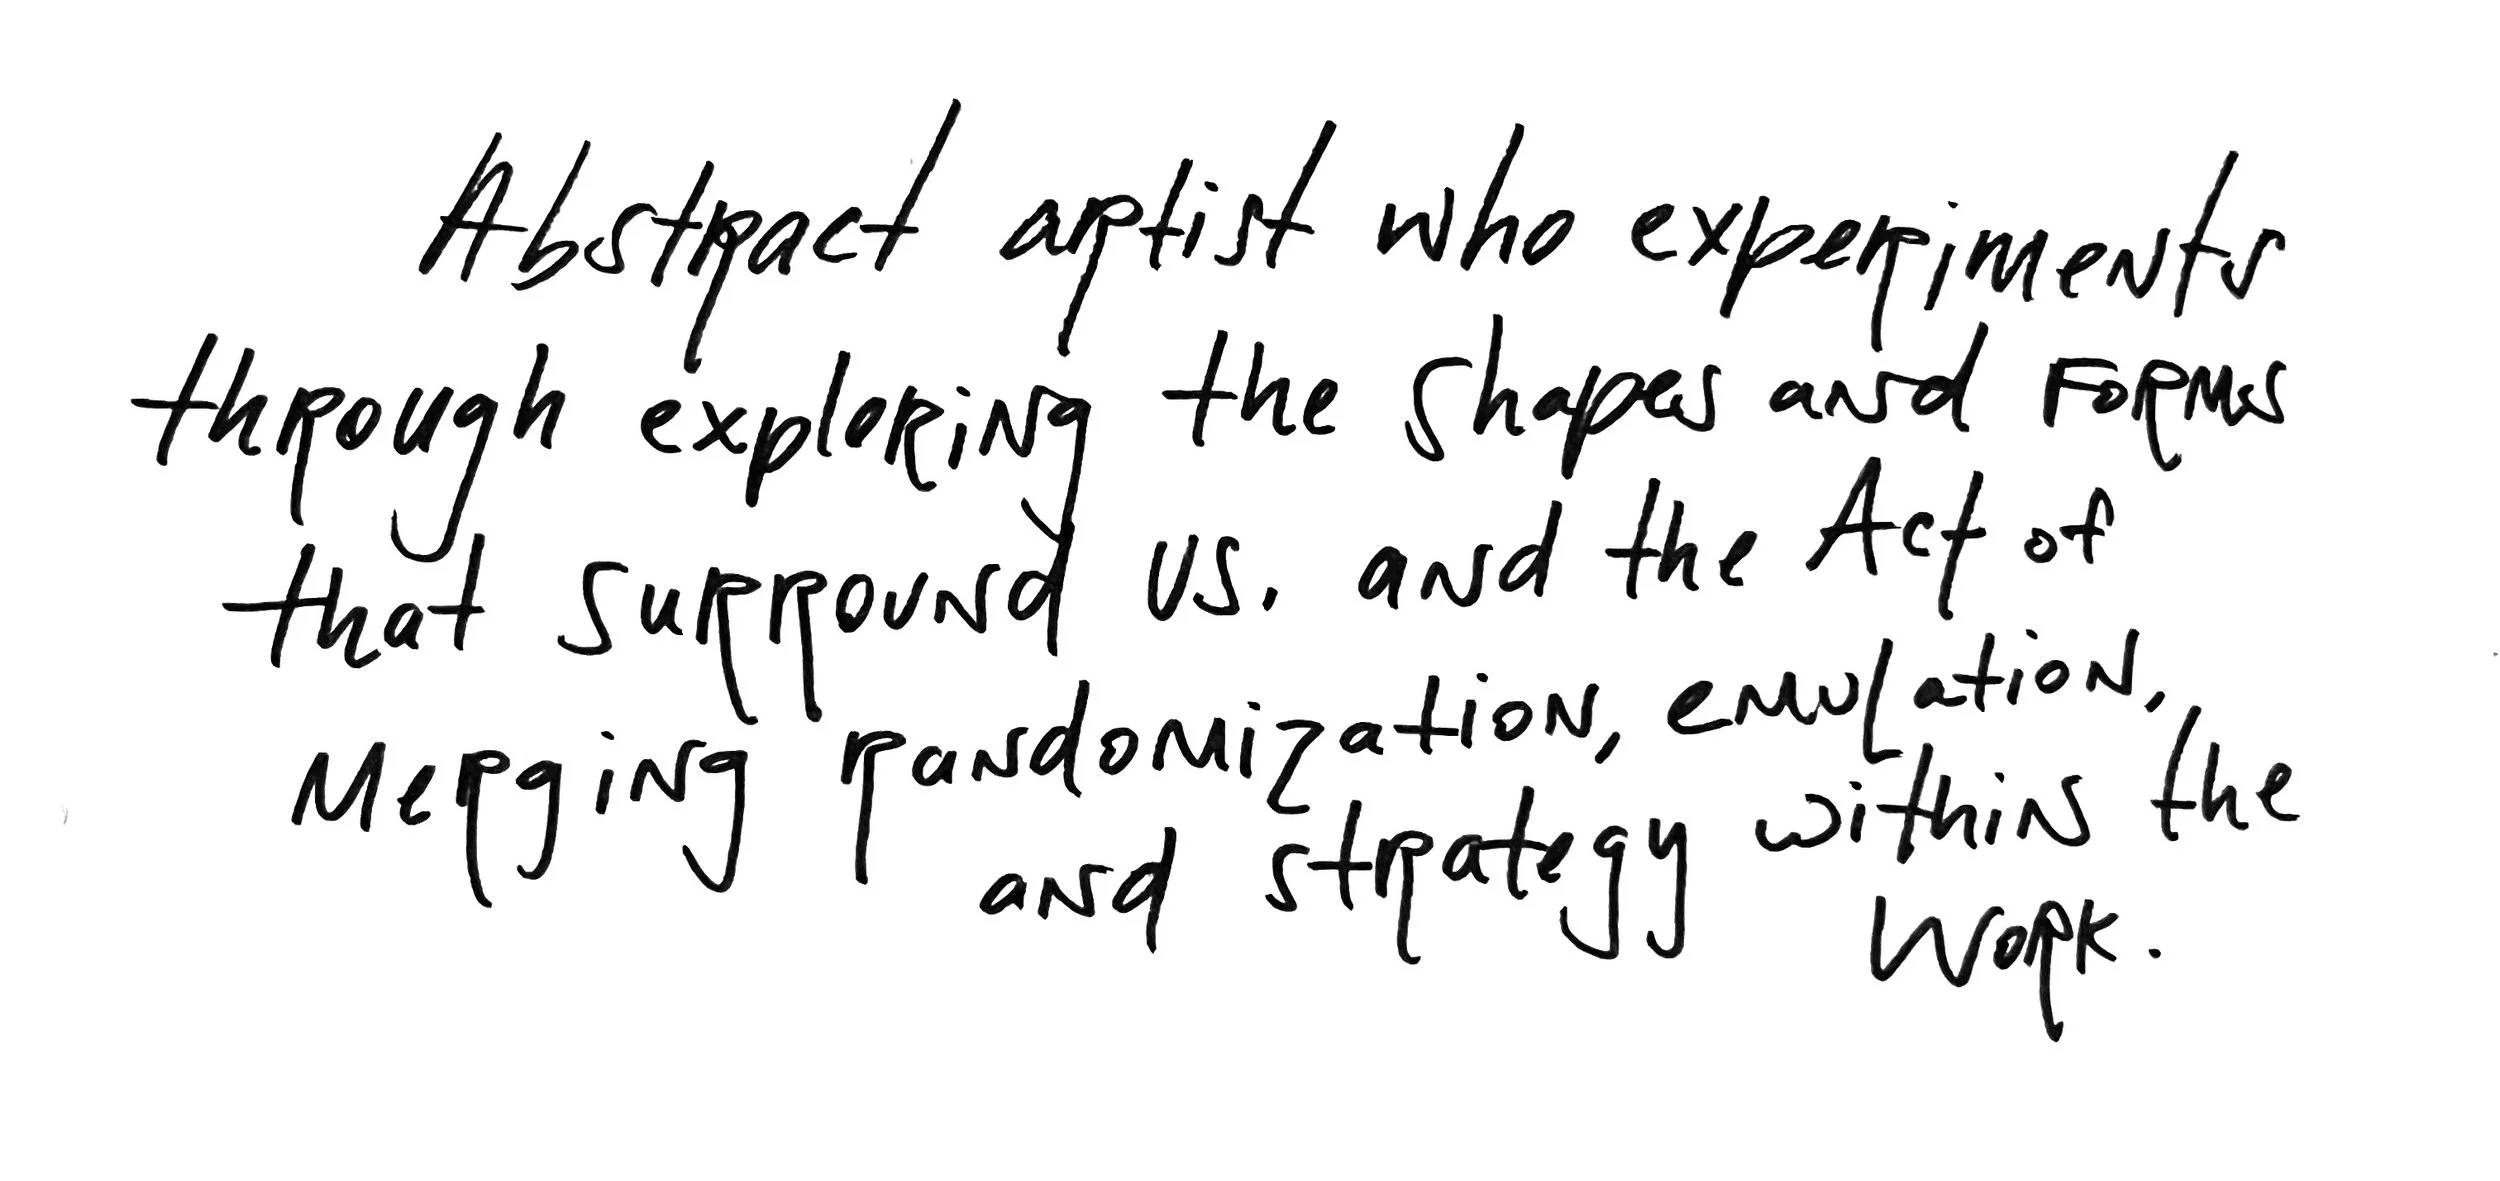 Abstract artist who experiments
through exploring the shapes and Forms
that surround us. and the Act of
Merging randomization, emulation,
and strategy within the
Work.